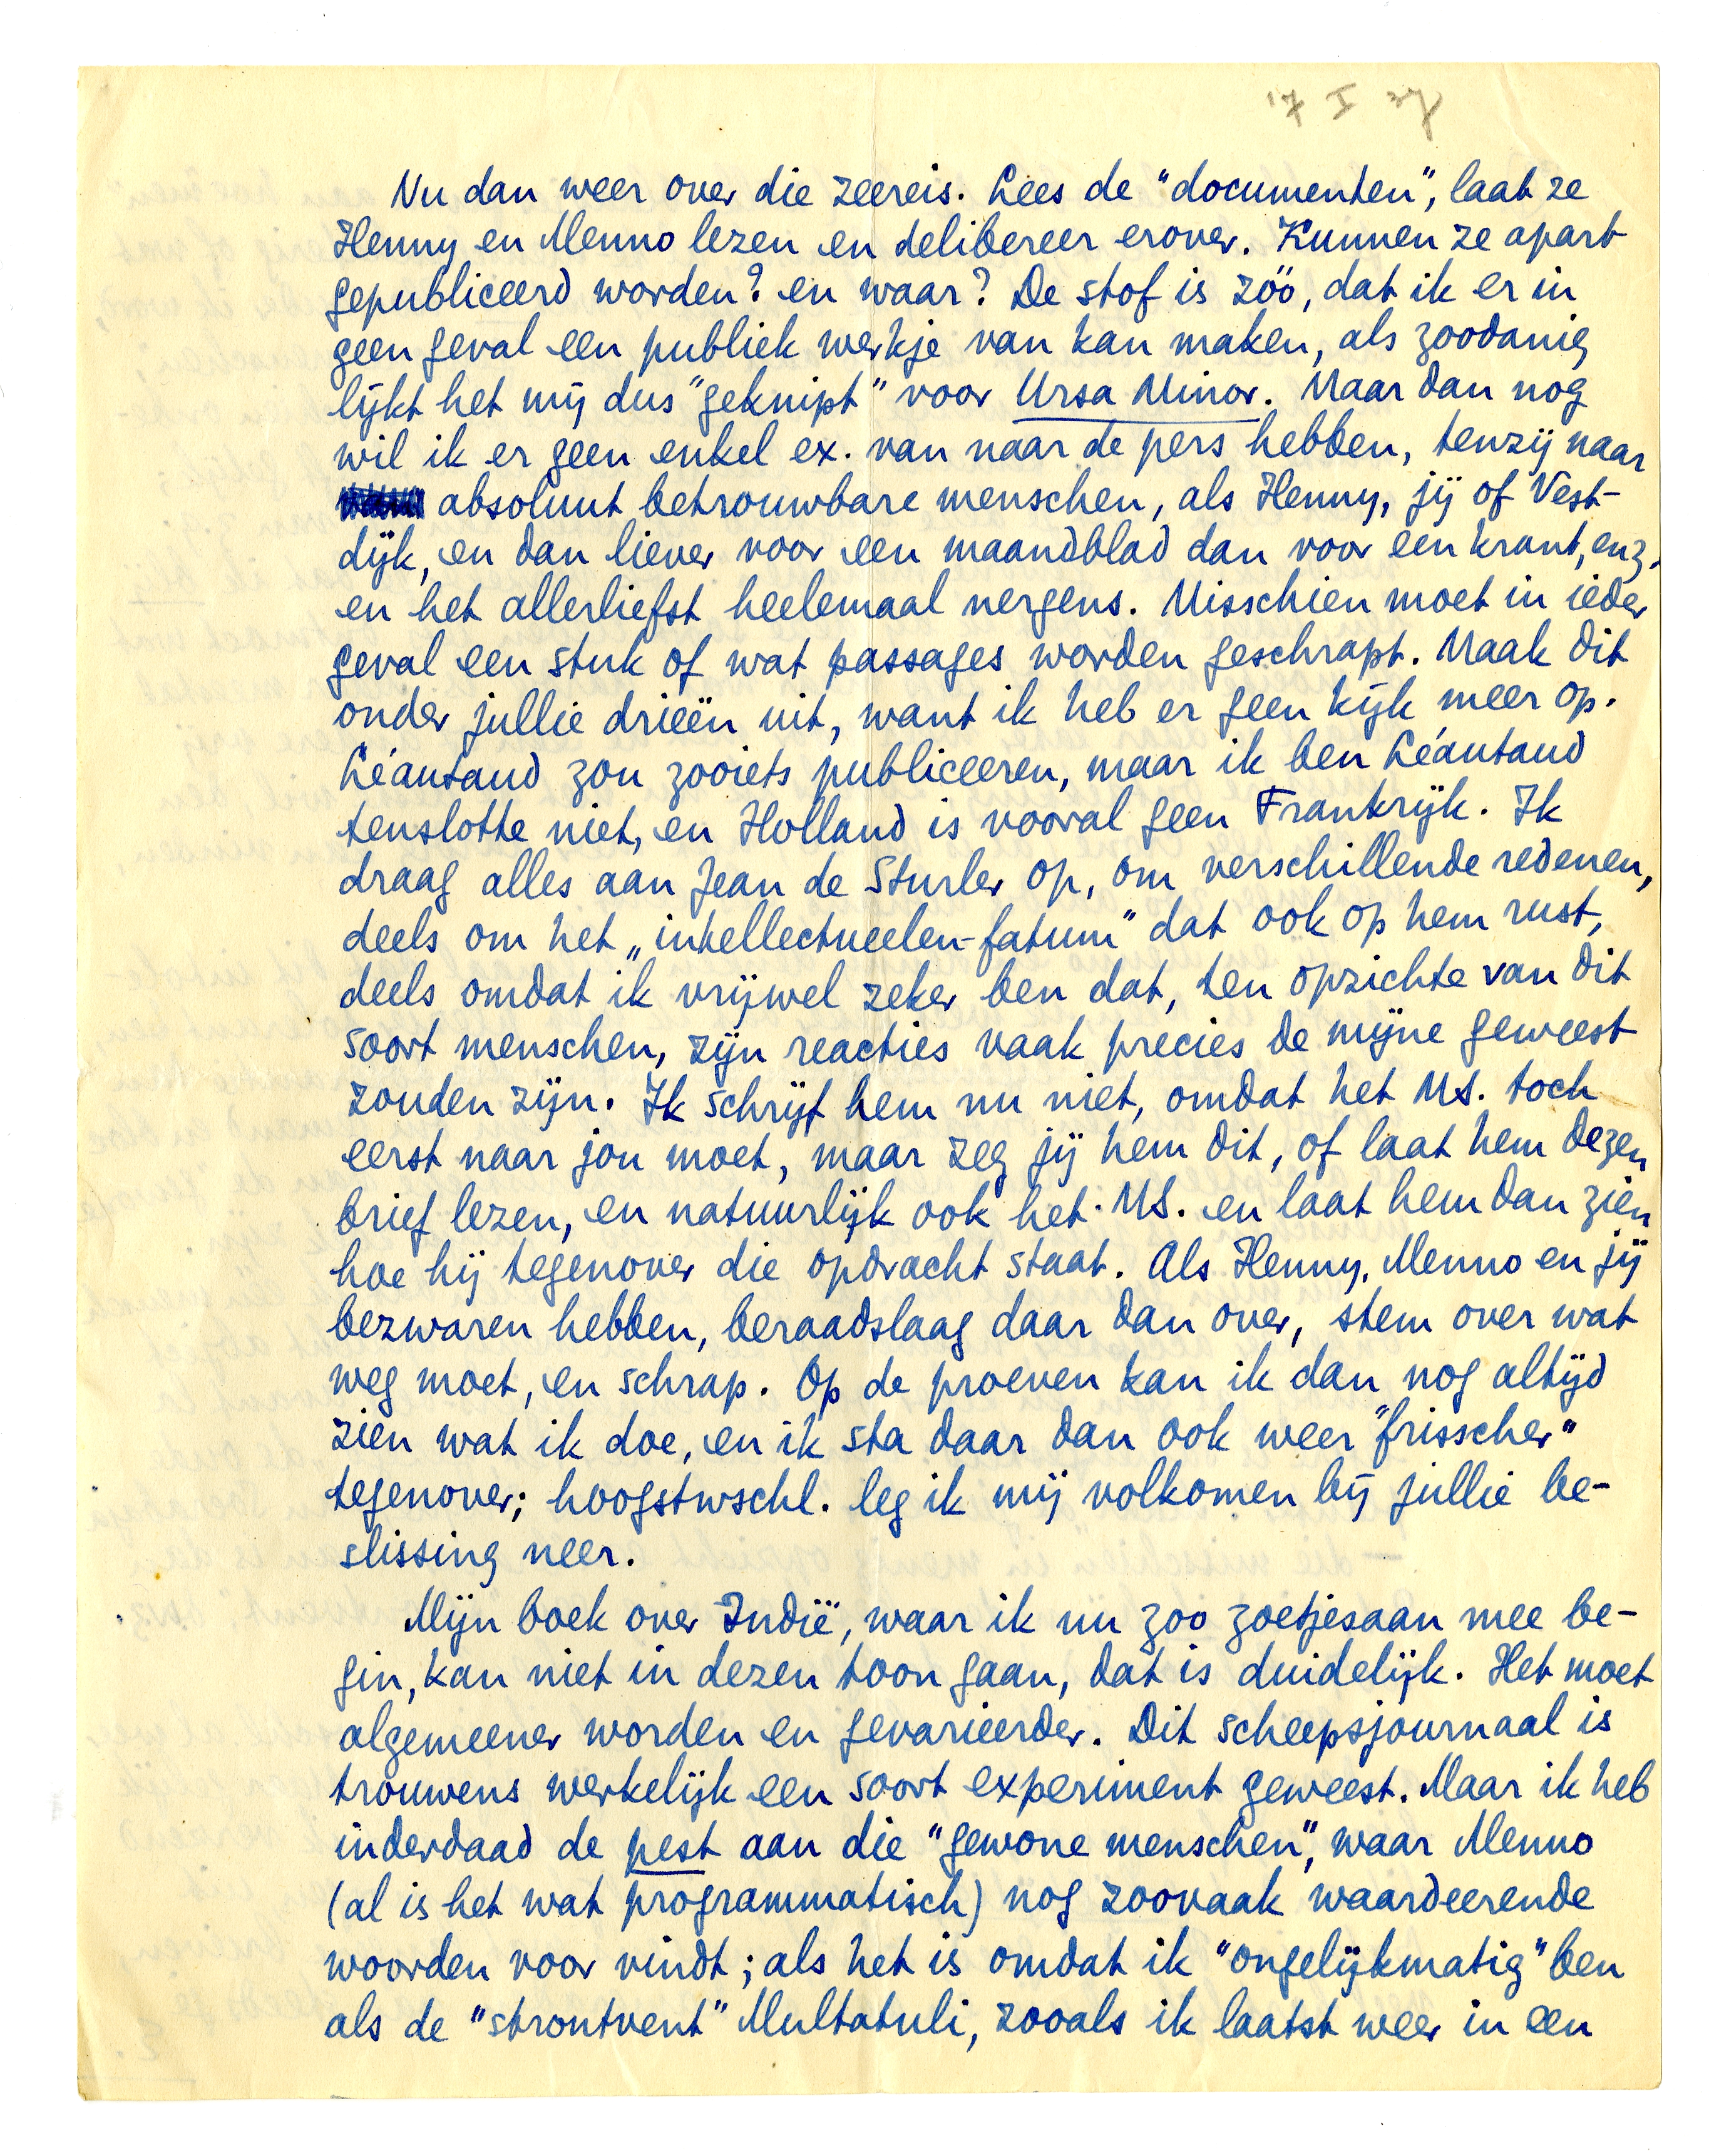 Nu dan weer over die zeereis. Lees de "documenten", laat ze
Henny en Menno lezen en delibereer erover. Kunnen ze apart
gepubliceerd worden? en waar? De stof is zóó, dat ik er in
geen geval een publiek werkje van kan maken, als zoodanig
lijkt het mij dus "geknipt" voor Ursa Minor. Maar dan nog
wil ik er geen enkel ex. van naar de pers hebben, tenzij naar
absoluut betrouwbare menschen, als Henny, jij of Vest-
dijk, en dan liever voor een maandblad dan voor een krant, enz.
en het allerliefst heelemaal nergens. Misschien moet in ieder
geval een stuk of wat passages worden geschrapt. Maak dit
onder jullie drieën uit, want ik heb er geen kijk meer op.
Léautaud zou zooiets publiceeren, maar ik ben Léautaud
tenslotte niet, en Holland is vooral geen Frankrijk. Ik
draag alles aan Jean de Sturler op, om verschillende redenen,
deels om het „intellectueelen-fatum" dat ook op hem rust,
deels omdat ik vrijwel zeker ben dat, ten opzichte van dit
soort menschen, zijn reacties vaak precies de mijne geweest
zouden zijn. Ik schrijf hem nu niet, omdat het MS. toch
eerst naar jou moet, maar zeg jij hem dit, of laat hem dezen
brief lezen, en natuurlijk ook het MS. en laat hem dan zien
hoe hij tegenover die opdracht staat. Als Henny, Menno en jij
bezwaren hebben, beraadslaag daar dan over, stem over wat
weg moet, en schrap. Op de proeven kan ik dan nog altijd
zien wat ik doe, en ik sta daar dan ook weer "frisscher"
tegenover; hoogstwschl. leg ik mij volkomen bij jullie be-
slissing neer.
Mijn boek over Indië, waar ik nu zoo zoetjesaan mee be-
gin, kan niet in dezen toon gaan, dat is duidelijk. Het moet
algemeener worden en gevarieerder. Dit scheepsjournaal is
trouwens werkelijk een soort experiment geweest. Maar ik heb
inderdaad de pest aan die "gewone menschen", waar Menno
(al is het wat programmatisch) nog zoovaak waardeerende
woorden voor vindt; als het is omdat ik "ongelijkmatig" ben
als de "strontvent" Multatuli, zooals ik laatst weer in een